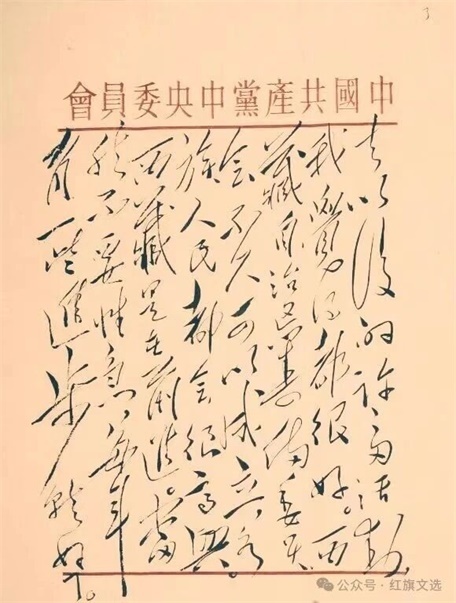 3
中國共產黨中央委員會
去以後的许多活動,
我覺得都很好。西
藏自治區籌備委員
会不久可以成立,各
族人民都会很高興。
西藏是在前進,當
然不要性急,每年
有一些進步就好了。
公众号·红旗文选